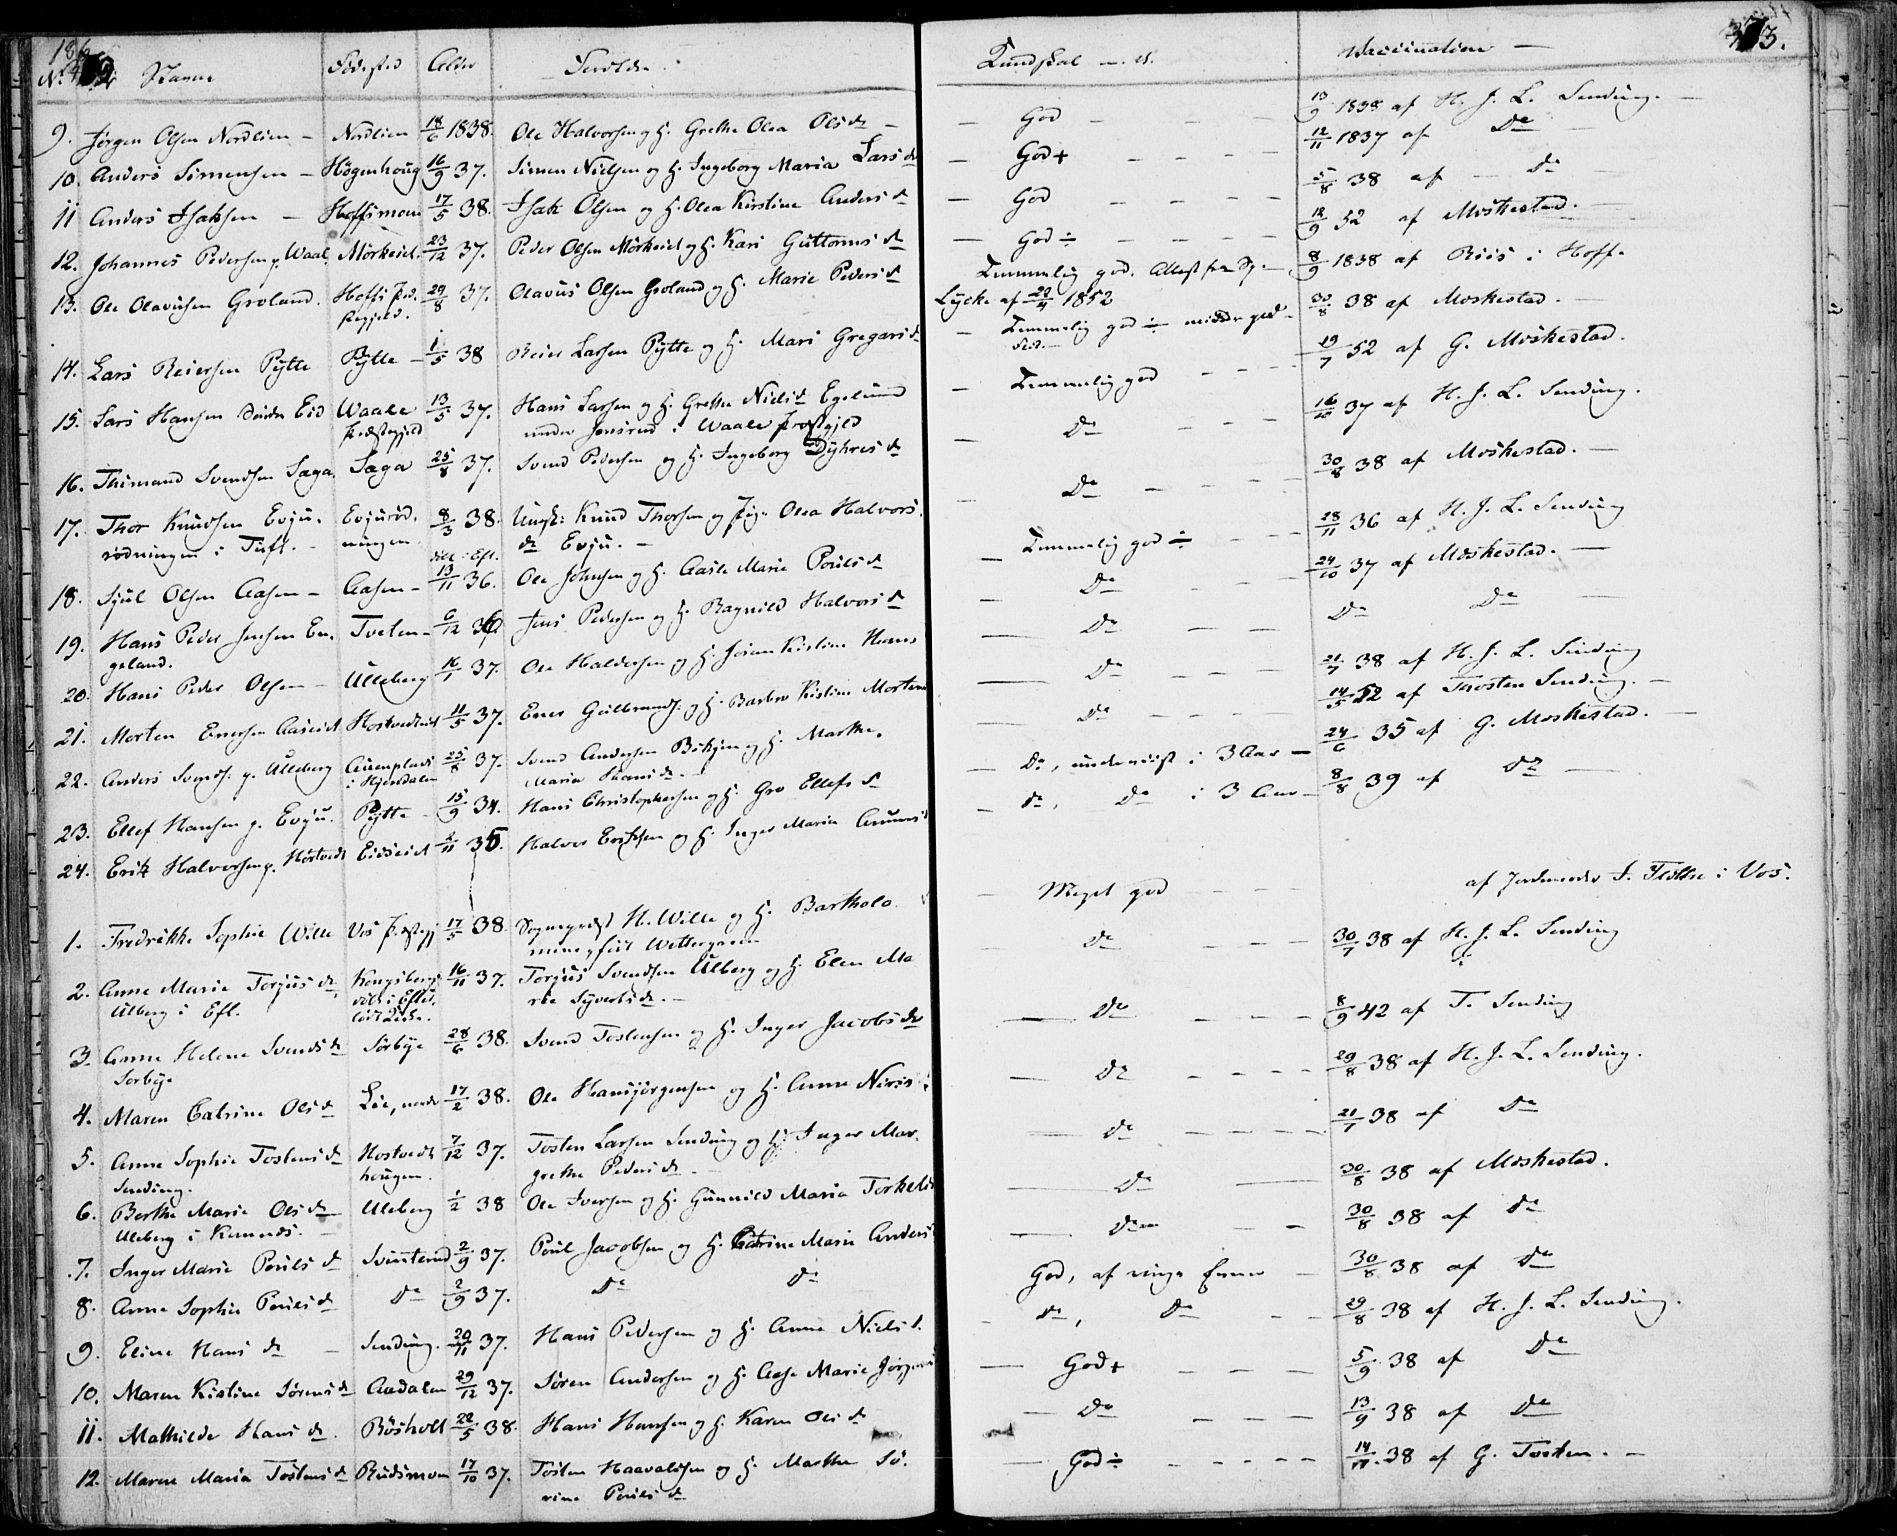 No. Navne Fødested Alder Forældre Kundskab Vaccination 373.
9. Jørgen Olsen Nordlien – Nordlien 18/6 1838. Ole Halvorsen og H. Grethe Olea Olsdr – God – 13/9 1838 af H. J. L. Sending. –
10. Anders Simensen – Högenhoug 16/9 37. Simen Nielsen og H. Ingeborg Maria Larsdr – God + – 12/11 1837 af Do
11 Anders Isaksen – Hoffsmoen 17/5 38. Isak Olsen og H. Olea Kirstine Andersdr – God – 5/8 38 af – Do
12. Johannes Pedersen p. Waal. Mörkeid. 23/12 37. Peder Olsen Mörkeid og H. Kari Guttormsdr – God ÷ – 12/9 52 af Moskestad. –
13. Ole Olavesen Groland. Hoffs Præstegjeld. 29/8 37. Olavus Olsen Groland og H. Marie Pedersdr Temmelig god. Attest fra Sp. Lycke af 20/4 1852 8/9 1838 af Riis i Hoff.
14. Lars Reiersen Pytte Pytte – 1/5 38 Reier Larsen Pytte og H. Mari Gregarsdr – Temmelig god ÷ 30/8 38 af Moskestad. –
15. Lars Hansen Eid Waale Præstegjeld 13/5 37. Hans Larsen og H. Grethe Nielsdr Egelund
under Jonsrud i Waale Præstgjeld – Temmelig god – 19/7 52 af G. Moskestad.
16. Thimand Svendsen Saga. Saga 25/8 37. Svend Pedersen og H. Ingeborg Dyhresdr – Do – 16/10 37 af H. J. L. Sending.
17. Thor Knudsen Evju. Evjurödningen 8/3 38. Ungk: Knud Thorsen og Pige Olea Halvors.
rödningen i Tuft. – dr Evju. – – Do – 30/8 38 af Moskestad. –
18. Sjul Olsen Aasen – Aasen – 13/11 36. Ole Johnsen og H. Aasle Marie Poulsdr – Temmelig god ÷ – 28/11 36 af H. J. L. Sending
19. Hans Peder Jensen En- Tveten – 6/12 36 Jens Pedersen og H. Ragnild Halvorsdr – Do – 24/10 37 af Moskestad. –
geland.
20. Hans Peder Olsen – Ulleberg 16/1 37. Ole Haldorsen og H. Kistine Hans – Do – Do Do
21. Morten Enersen Aaseid Hostvedteid 11/5 37. Ener Gulbrands. og H. Barbro Kistine Mortens – Do – 21/7 38 af H. J. L. Sending
22. Anders Svends. p. Ulleberg i Hjerdalen 25/8 37. Svend Andersen og H. Marthe
Maria – Do – 14/5 52 af Thosten Sending. –
23. Ellef Hansen p. Evju. Pytte – 15/9 34. Hans Christophersen og H. Gro Ellefsdr – Do, underviist i 3 Aar – 24/6 35 af G. Moskestad. –
24. Erik Halvorsen p. Hostvedt Eidseid 2/11 35. Halvor Eriksen og H. Inger Maria – Do, Do i 3 Aar – 8/8 39 af Do
1. Fredrikke Sophie Wille Vos Præstegj 17/5 38. Sogneprest H. Wille og H. Bartholo
mine, föd Wettergreen – Meget god – af Jordemoder i Vos.
2. Anne Marie Torjusdr Kongsberg 16/11 37. Torjus Svendsen Ulberg og H. Elen Ma
Ulberg i Efl. rie Syvertsdr. – Do – 30/7 38 af H. J. L. Sending
3. Anne Helene Svendsdr Sörbye 28/6 38. Svend Tostensen og H. Inger Jacobsdr – Do – 8/9 42 af T. Sending
Sorbye
4. Maren Catrine Olsdr Lie, nordr 17/2 38. Ole Hansjörgensen og H. Anne – Do – 29/8 38 af H. J. L. Sending.
5. Anne Sophie Tostensdr Hostvedthougen. 7/12 37. Tosten Larsen Sending og H. Inger Mar-
Sending. grethe Pedersdr – – Do – 21/7 38 af Do
6. Berthe Marie Olsdr Uleberg 1/2 38 Ole Iversen og H. Gunnild Maria Torkels – Do – 30/8 38 af Moskestad.
Uleberg i
7. Inger Marie Poulsdr 2/9 37. Poul Jacobsen og H. Catrine Marie Anders – Do – 30/8 38 af Do
8. Anne Sophie Poulsdr Do 2/9 37. Do Do God, af ringe Evner – 30/8 38 af Do
9. Eline Hansdr – Sending. 20/11 37. Hans Pedersen og H. Anne Nielsd. – do, Do – 29/8 38 af H. J. L. Sending.
10. Maren Kistine Sörensdr Aadalen 29/12 37. Sören Andersen og H. Aase Marie Jörgens – God + – 5/9 38 af Do
11. Mathilde Hansdr. Bösholt 22/5 38. Hans Hansen og H. Karen Olsdr – Do – 13/9 38 af Do
12. Maren Maria Tostensdr Rudsmoen 17/10 37. Tosten Haavaldsen og H. Marthe Sö-
rine Poulsdr – God ÷ – 14/11 38 af G. Tveten. –